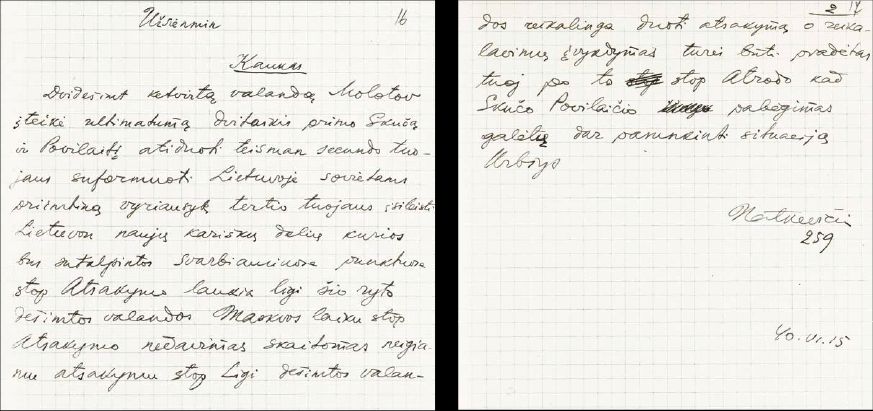 Užsienmin
16
Kaunas
Dvidešimt ketvirtą valandą Molotov
įteikė ultimatumą dvitaškis primo Skučą
ir Povilaitį atiduoti teisman secundo tuo-
jaus suformuoti Lietuvoje sovietams
priimtiną vyriausybę tertio tuojaus įsileisti
Lietuvon naujų kariškų dalių kurios
bus patalpintos svarbiauniose punktuose
stop Atsakymo laukia ligi šio ryto
dešimtos valandos Maskvos laiku stop
Atsakymo nedavimas skaitomas neigia-
mu atsakymu stop Ligi dešimtos valan-
2 17
dos reikalinga duoti atsakymą o reika-
lavimų įvykdymas turės būti pradėtas
tuoj po to stop Atrodo kad
Skučo Povilaičio pabėgimas
galėtų dar pasunkinti situaciją
Urbšys
Natkevičius
259
40.VI.15